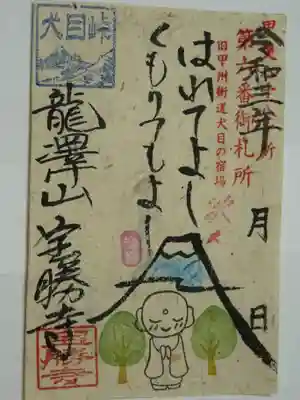 令和三年 月 日
第六番御札所
旧甲州街道犬目の宿場
はれてよし
くもりてもよし
犬目峠
龍澤山 宝勝寺